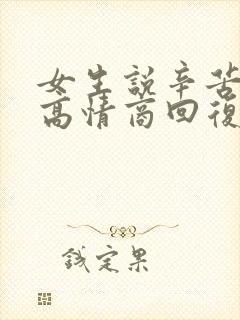 女生說辛苦
高情商回復
錢定果